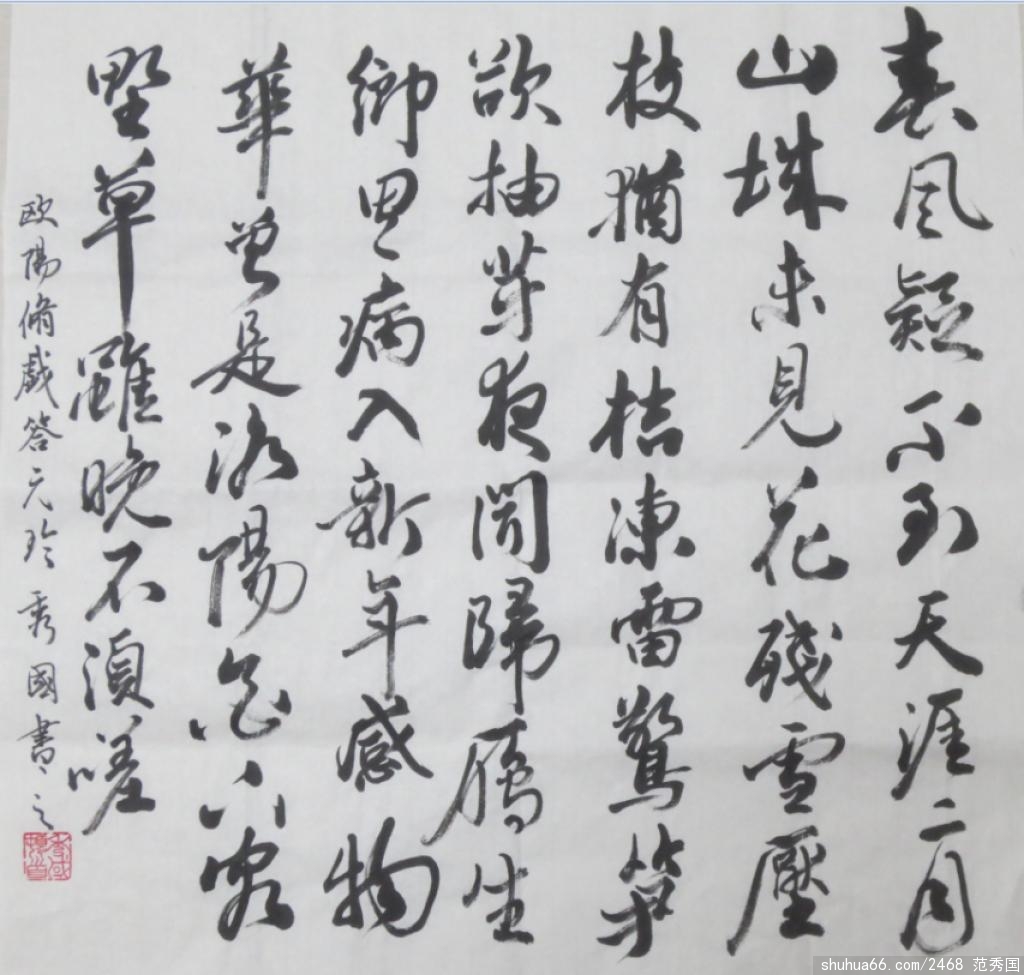 春风疑不到天涯二月
山城未見花殘雪壓
枝猶有桔凍雷驚笋
欲抽芽夜聞歸鴈生
鄉思病入新年感物
華曾是洛陽花下客
野草雖晚不須嗟
欧陽脩戲答元珍 秀國書之
shuhua66.com/2468 范秀国